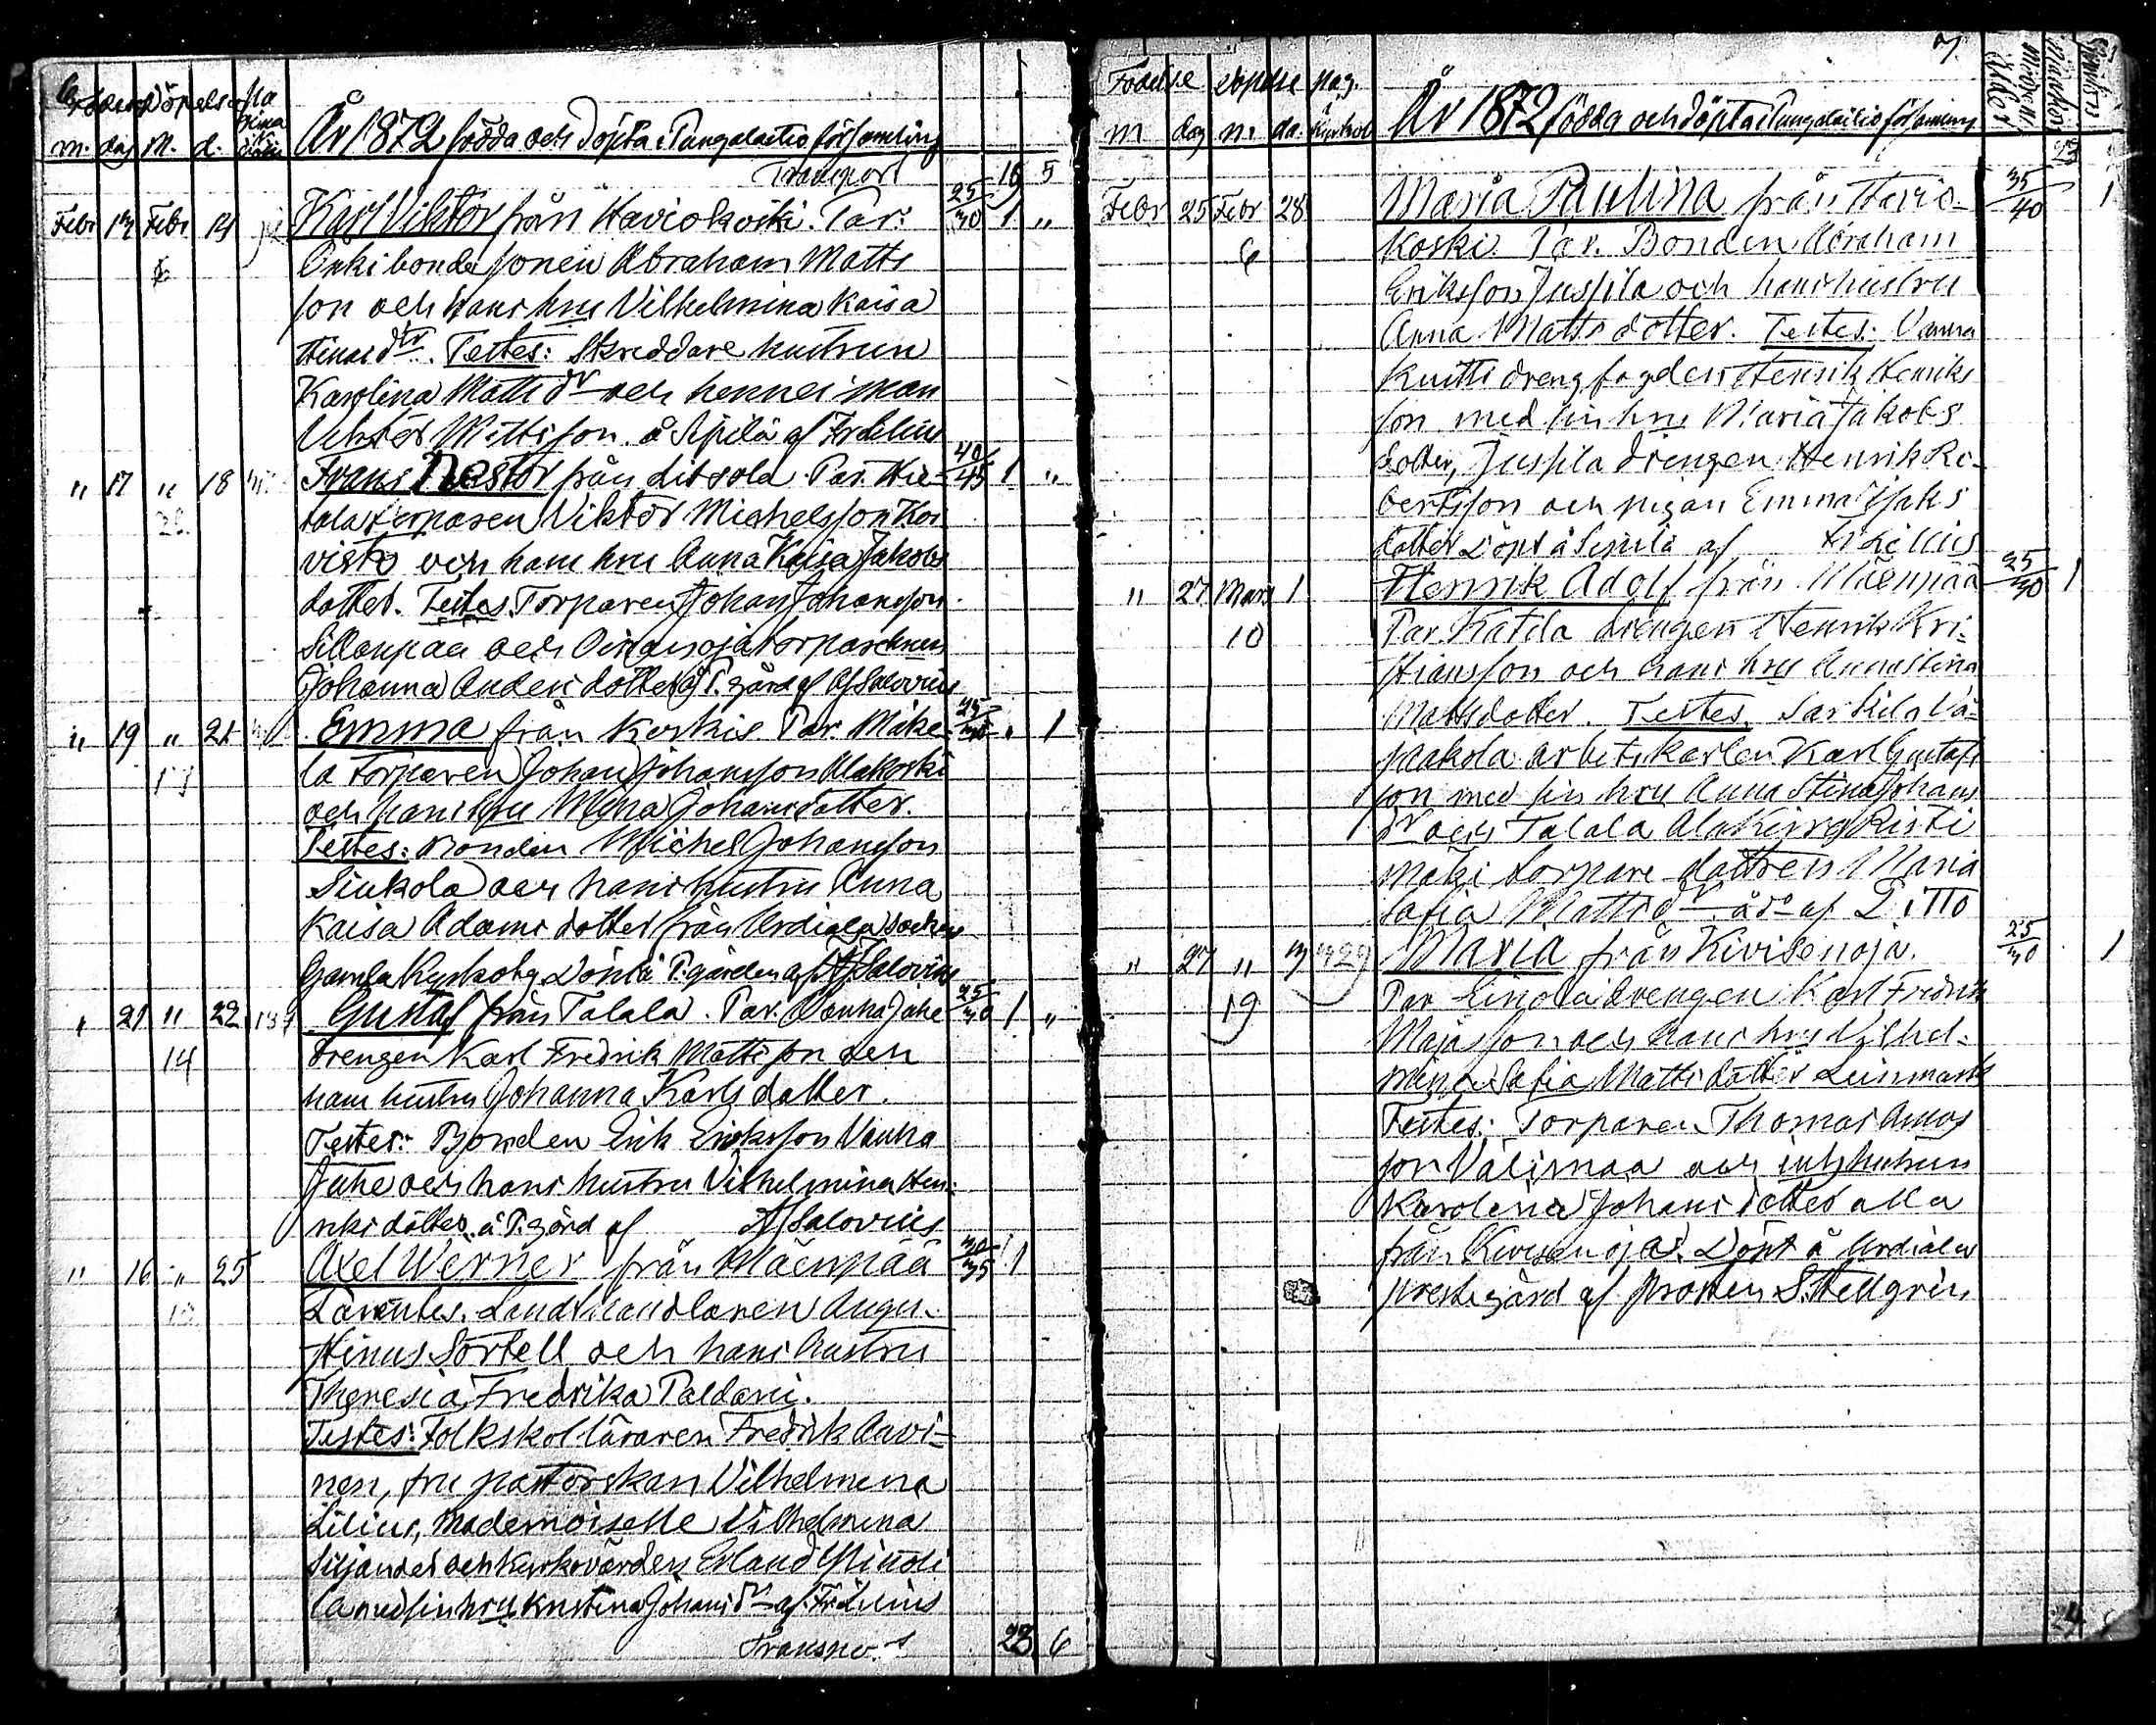 6
Födelse Döpelse
m. dag M. d.
År 1872 födda och döpta i Pungalaitio församling
Transport 16 5
Febr 13 Febr 14 Karl Viktor från Haviokoski. Par: 25/30 1 „
Onki bonde sonen Abraham Matts
son och hans hru Vilhelmina Kaisa
dtr. Testes: Skreddare hustrun
Karolina Matts dr och hennes man
Viktor Mattsson å Sipilä af Fr. Lilius
„ 17 „ 18 Frans Nestor från Litsola. Par. Hie- 40/45 1 „
tala torparen Viktor Michelsson Koi
visto och hans hru Anna Kaisa Jakobs
dotter. Testes. Torparen Johan Johansson
Sillanpää och Oinaisoja torpare hrun
Johanna Anders dotter å P. gård af Af Salovius
„ 19 „ 21 Emma från Korkis. Par. Mike- 25/30 „ 1
13 la torparen Johan Johansson Alakoski
och hans hru Mina Johansdotter.
Testes: Bonden Michel Johansson
Siukola och hans hustru Anna
Kaisa Adams dotter från Urdiala socken
Gamla Kyrkoby. Döpta å P. gården af Af Salovius
„ 21 „ 22 189 Gustaf från Talala. Par. Vanha Juhe 25/30 1 „
14 drengen Karl Fredrik Mattsson och
hans hustru Johanna Karls dotter.
Testes: Bonden Erik Eriksson Vanha
Juhe och hans hustru Vilhelmina Hen-
riks dotter å P. gård af Af Salovius
„ 16 „ 25 Axel Werner från Mäenpää 30/35 1
Parentes. Landthandlaren Augu-
stinus Sortell och hans hustru
Theresia Fredrika Paldani.
Testes: Folkskolläraren Fredrik Anvi-
nen, fru pastorskan Vilhelmina
Lilius, Mademoiselle Vilhelmina
Siljander och Kyrkovärden Erland
la med sin hru Kristina Johans dr af Fr. Lilius
Transport 23 6
7
Födelse döpelse pag.
m dag m. da.
År 1872 födda och döpta i Pungalaitio församling
23
Febr 25 Febr 28 Maria Paulina från Havio- 35/40 1
6 koski. Par. Bonden Abraham
Eriksson Juspila och hans hustru
Anna Matts dotter. Testes: Vanha
Kuitti dreng fogden Henrik Henriks
son med sin hru Maria Jakobs
dotter, Juspila drengen Henrik Ro-
bertsson och pigan Emma Isaks
dotter Döpt å Sipilä af Fr. Lilius
„ 27 Mars 1 Henrik Adolf från Mäenpää 25/30 1
10 Par. Katila drengen Henrik Kri-
stiansson och hans hru Anna Stina
Mattsdotter. Testes. Sarkila Vä-
makola arbetskarlen Karl Gustafs
son med sin hru Anna Stina Johans
dr och Talala Alakirrg Risti
mäki torpare dottren Maria
Sofia Matts dr å do af Ditto
„ 27 „ 3 329 Maria från Kivisenoja. 25/30 1
19 Par Einola drengen Karl Fredrik
Majasson och hans hru Vilhel-
mina Sofia Matts dotter
Testes: Torparen Thomas
son Välimaa och inh. hustrun
Karolina Johans dotter alla
från Kivisenoja. Döpt å Urdiala
prestegård af prosten S. Hellgrén
24